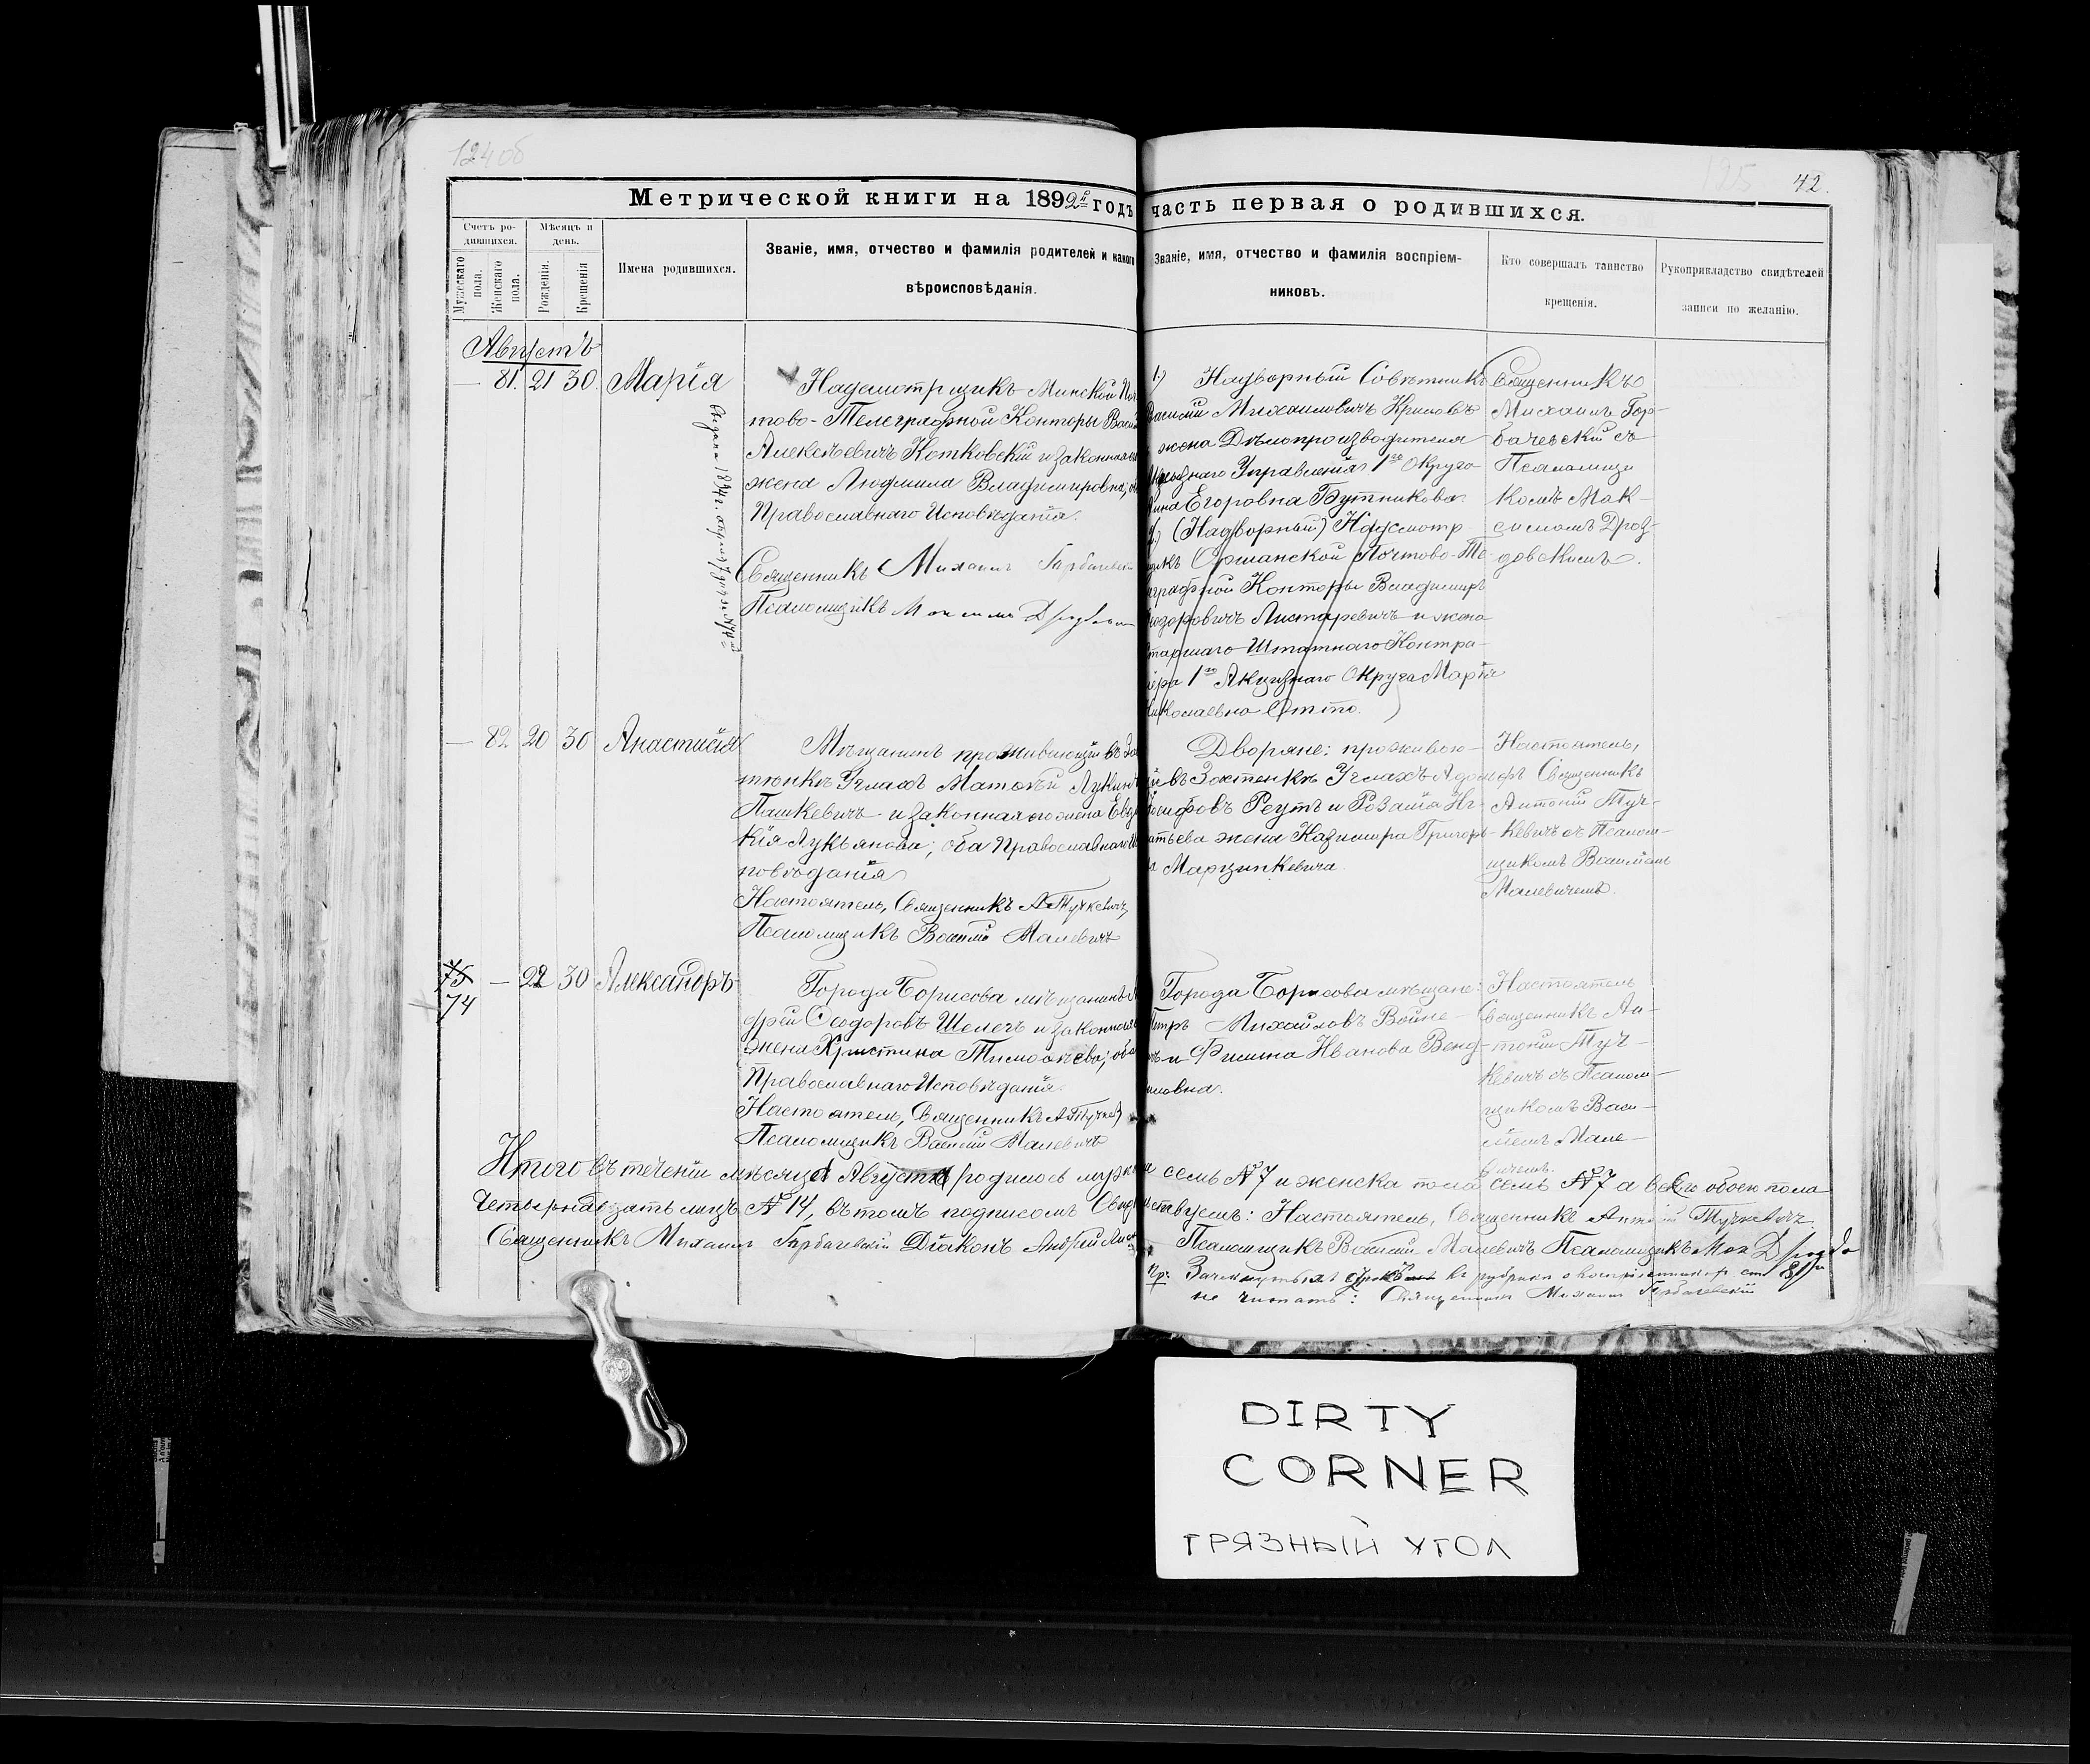 124 об
125
42.
Метрической книги на 1892й годъ часть первая о родившихся.
Счетъ ро-
дившихся.
Мужескаго пола.
Женскаго пола.
Мѣсяцъ и
день.
Рожденія.
Крещенія
Имена родившихся.
Званіе, имя, отчество и фамилія родителей и какого
вѣроисповѣданія.
Званіе, имя, отчество и фамилія воспріем-
никовъ.
Кто совершалъ таинство
крещенія.
Рукоприкладство свидѣтелей
записи по желанію.
Августъ
— 81. 21 30. Марія
Надсмотрщикъ Минской Поч
тово-Телеграфной Конторы Васил
Алексѣевичъ Котковскій и законная е
жена Людмила Владимировна; о
Православнаго Исповѣданія.
Священникъ Михаилъ Горбачевск
Псаломщикъ Максимъ Дроздов
1.) Надворный Совѣтникъ
Василій Михаиловичъ Крыловъ
жена Дѣлопроизводителя
Управленія 1го Округа
Егоровна Бутникова.
2) (Надворный) Надсмотр
щикъ Оршанской Почтово-Те
леграфной Конторы Владимиръ
Листаревичъ и жена
таршаго Штатнаго Контра-
лера 1го Акцизнаго Округа Марія
Николаевна Отто.)
Священникъ
Михаилъ Гор-
бачевскій съ
Псаломщи
комъ Мак-
симомъ Дроз-
довскимъ.
— 82 20 30 Анастасія
Мѣщанинъ проживающій въ За
стѣнкѣ Углахъ Матѳѣй Лукинъ
Пашкевичъ и законная его жена Евдо
кія Лукьянова; оба Православнаго Ис
повѣданія
Настоятель, Священникъ А Тучкевичъ
Псаломщикъ Василій Малевичъ
Дворяне: проживаю-
й въ Застенкѣ Углахъ Адольфъ
Іосифовъ Реутъ и Розалія Иг-
атьева жена Казимира Григорь-
а Марцинкевича.
Настоятель,
Священникъ
Антоній Туч-
кевичъ съ Псалом-
щикомъ Василіемъ
Малевичемъ.
75
74
— 22 30 Александръ
Города Борисова мѣщанинъ Ан
дрей Ѳеодоровъ Шелегъ и законная
жена Христина Тимоѳѣева; оба
Православнаго Исповѣданія.
Настоятель, Священникъ А Тучкев
Псаломщикъ Василій Малевичъ
Города Борисова мѣщане:
Петръ Михайловъ Войне-
чъ и Фили­на Иванова Венд-
иловна.
Настоятель
Священникъ Ан-
тоній Туч-
кевичъ съ Псалом-
щикомъ Васи-
ліемъ Мале-
вичемъ.
Итого въ теченіи мѣсяца Августа родилось мужска семь №7 и женска пола семь №7 а всего обоего пола
четырнадцать лицъ №14, въ томъ подписомъ Свидѣтельствуемъ: Настоятель, Священникъ Антоній Тучкевичъ.
Священникъ Михаилъ Горбачевскій Діаконъ Андрей Псаломщикъ Василій Малевичъ Псаломщикъ Мак Дроздо
Пр: Зачеркнутыхъ въ рубрикѣ о воспріемникахъ ст 81й
не читать: Священникъ Михаилъ Горбачевскій
DIRTY
CORNER
ГРЯЗНЫЙ УГОЛ